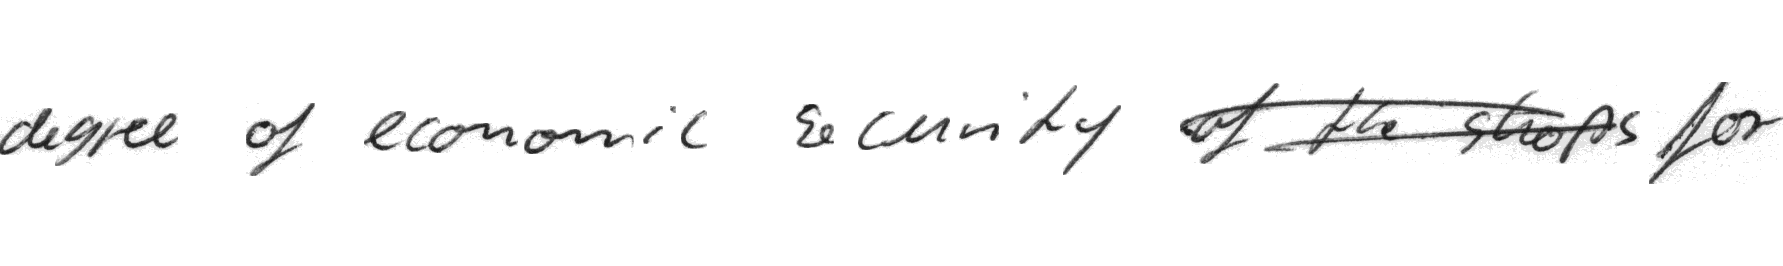 degree of economic security of the shops for